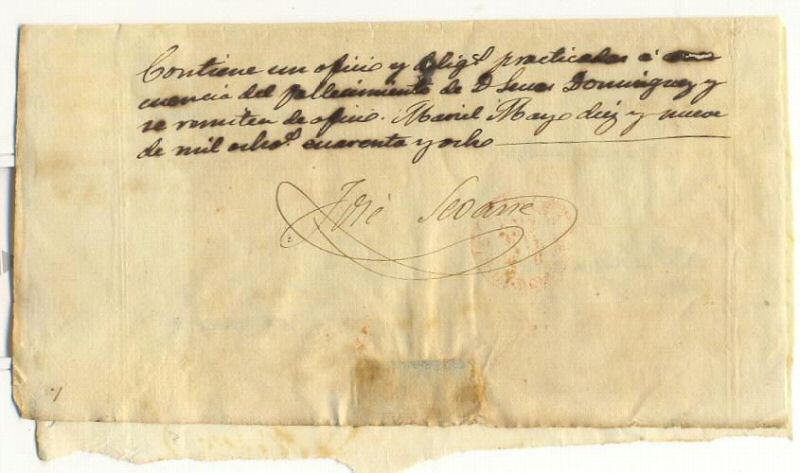 Contiene un oficio y dilig.s practicadas á
cuencia del fallecimiento de D. Dominguez y
se remiten de oficio. Mariel Mayo diez y nueve
de mil ocho.s cuarenta y ocho
José Seoane